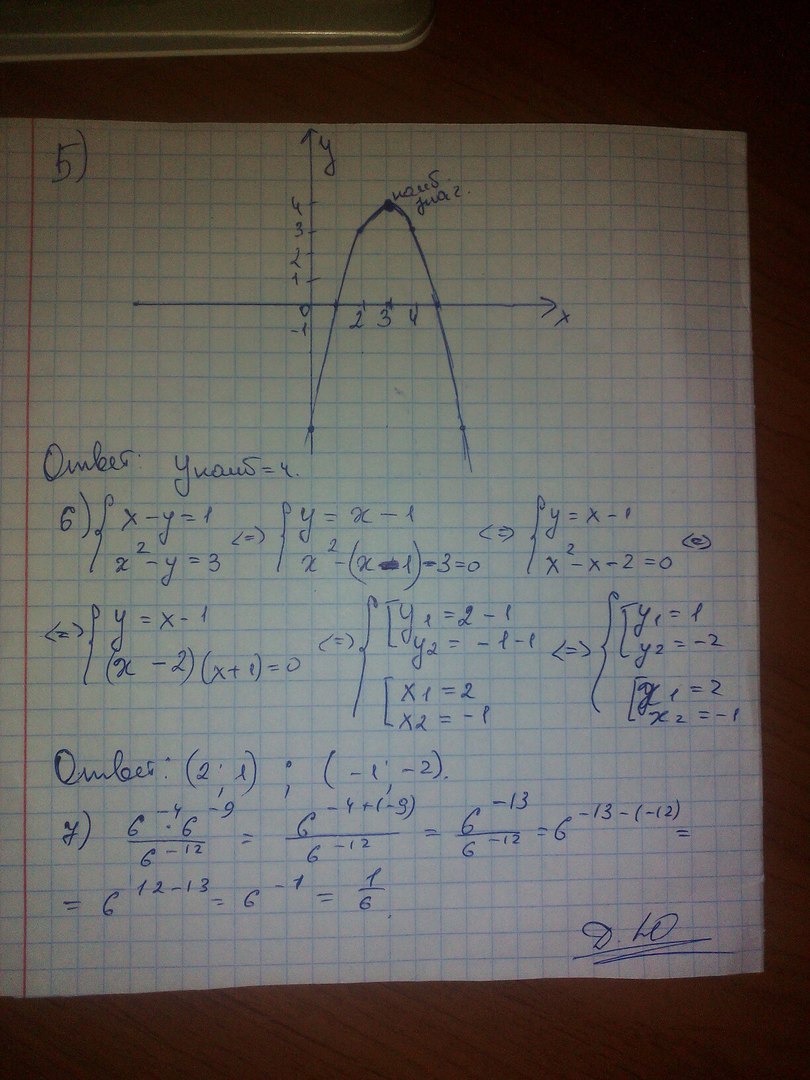 5)
y
наиб.
знач.
4
3
2
1
0
-1
2 3 4 x
Ответ: yнаиб=4.
6) { x-y=1 <=> { y = x-1 <=> { y=x-1 <=>
x²-y=3 x²-(x-1)-3=0 x²-x-2=0
<=> { y=x-1 <=> { [ y₁=2-1 <=> { [ y₁=1
(x-2)(x+1)=0 y₂=-1-1 y₂=-2
[ x₁=2 [ x₁=2
x₂=-1 x₂=-1
Ответ: (2;1) ; (-1;-2).
7) 6⁻⁴·6⁻⁹/6⁻¹² = 6⁻⁴⁺⁽⁻⁹⁾/6⁻¹² = 6⁻¹³/6⁻¹² = 6⁻¹³⁻⁽⁻¹²⁾ =
= 6¹²⁻¹³ = 6⁻¹ = 1/6.
Д.Ю